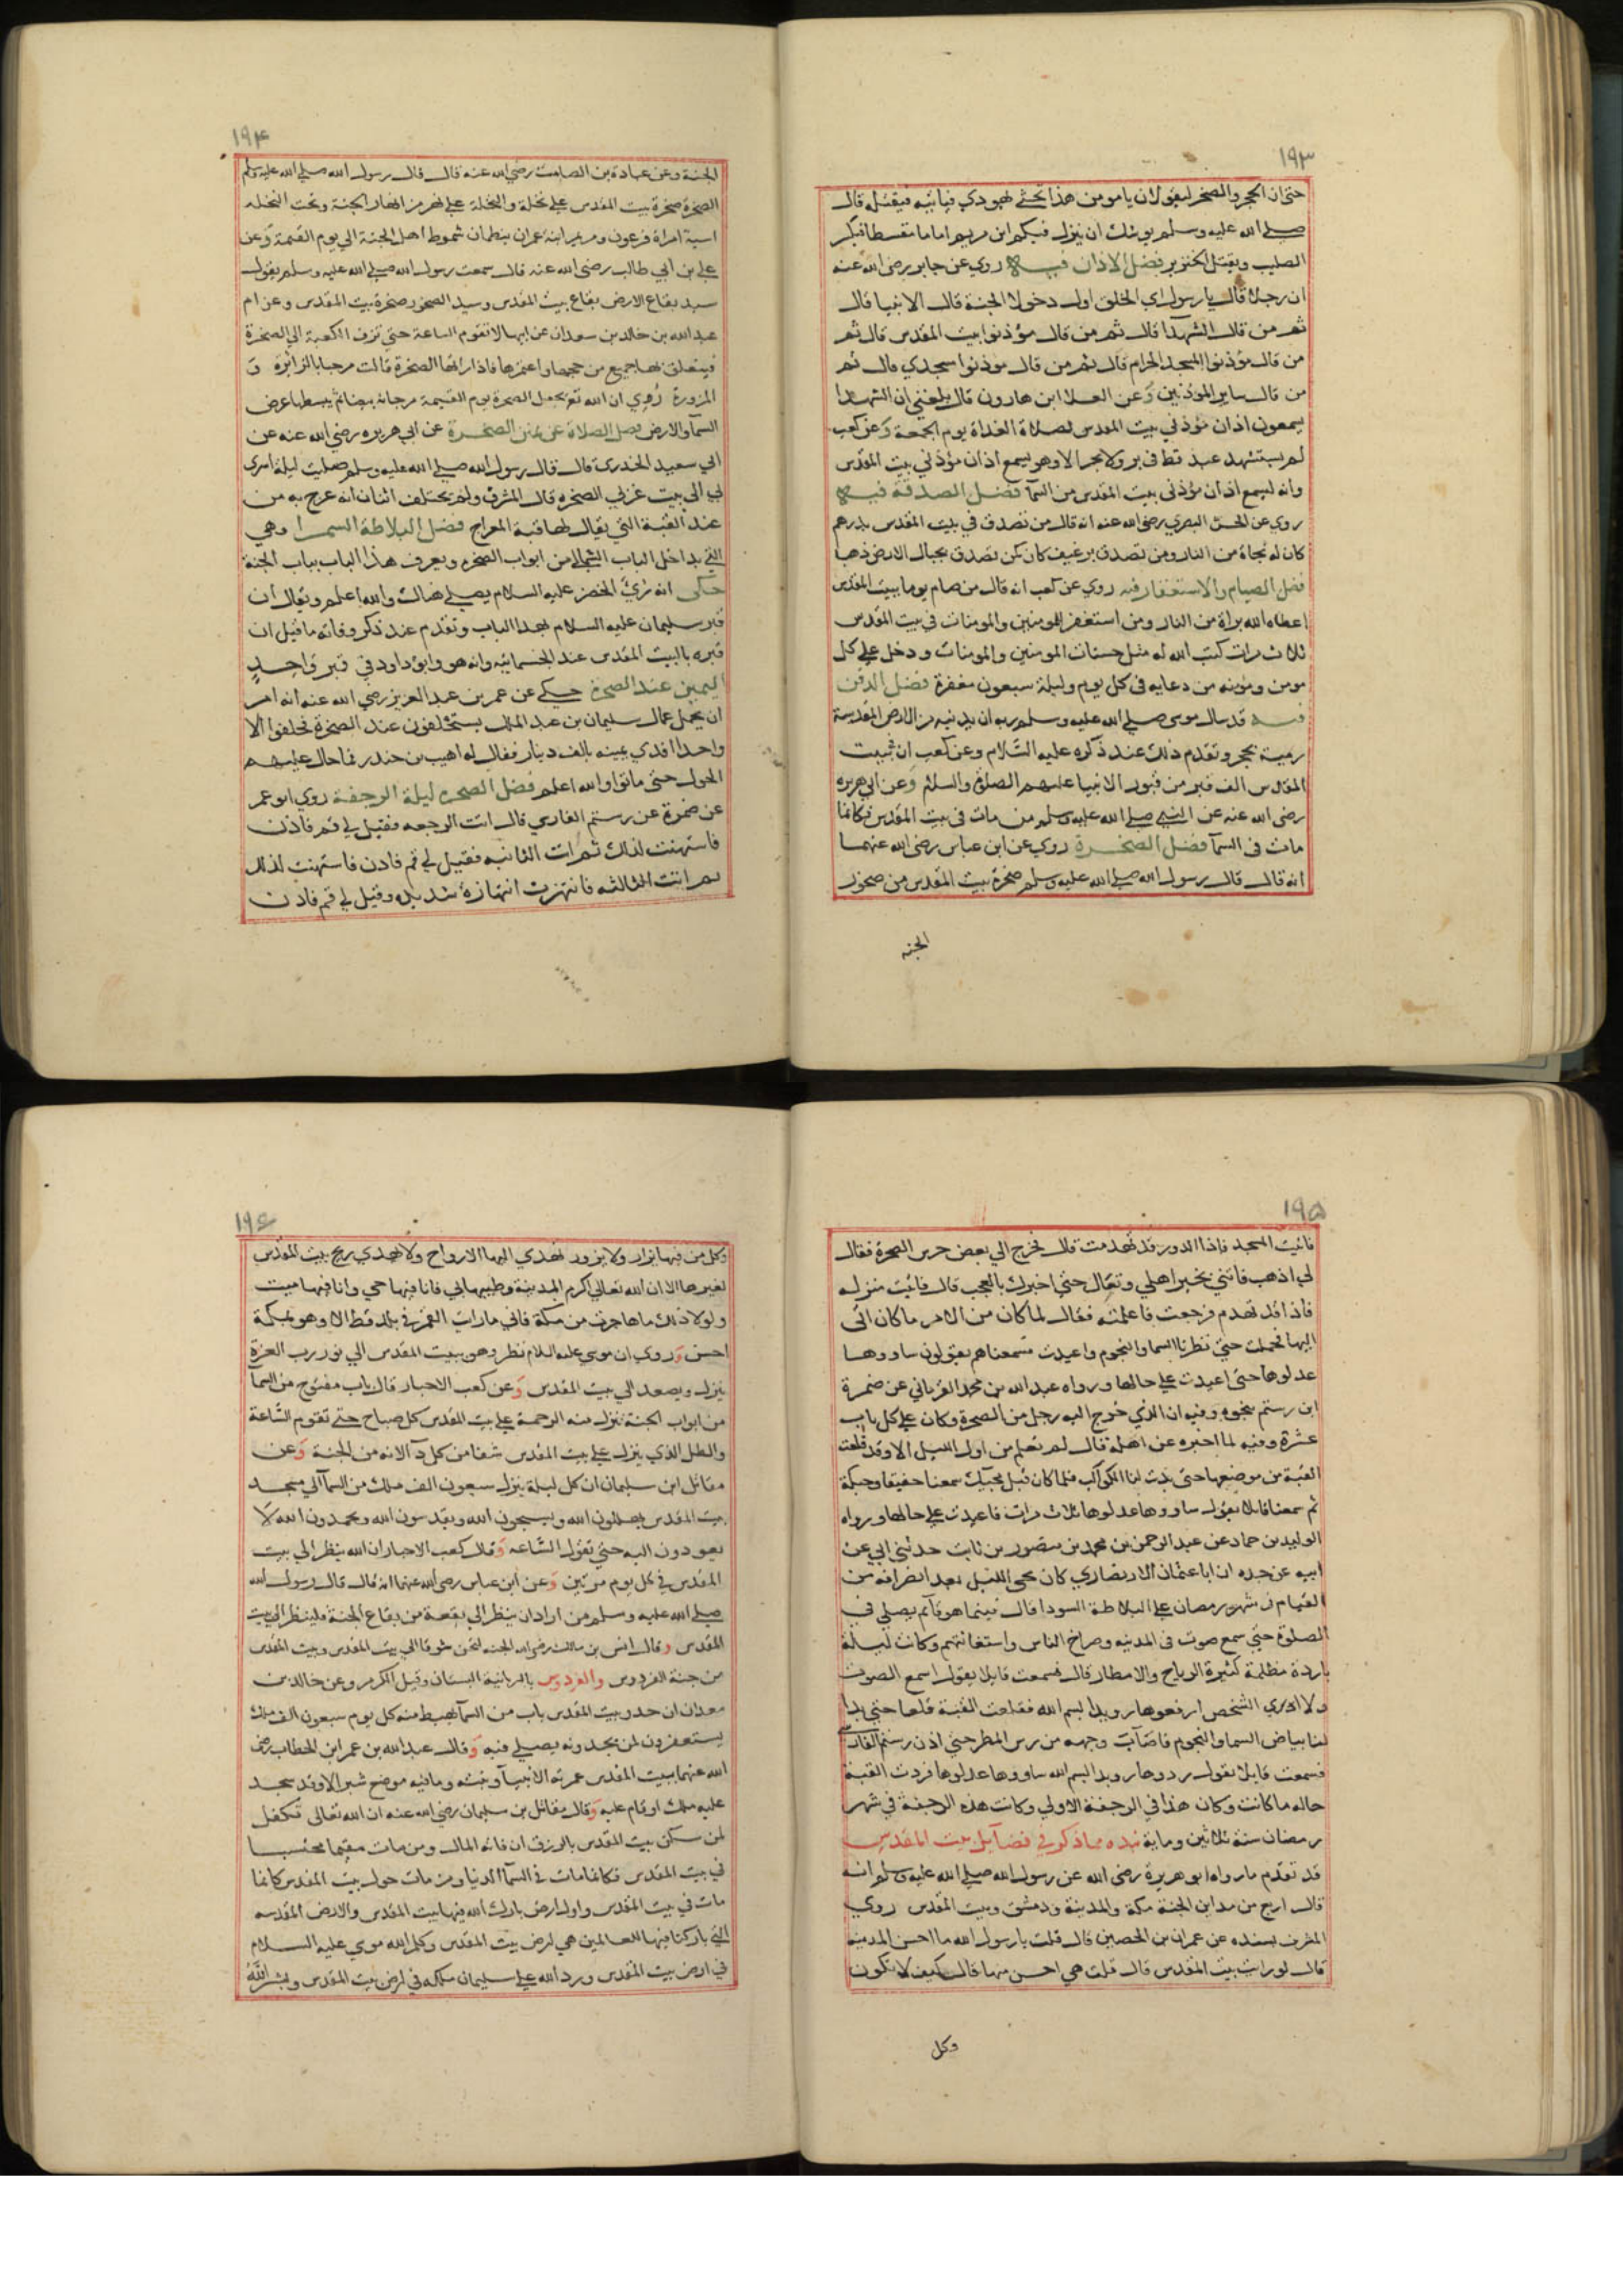 ١٩٣
حتى ان الحجر والصخر ليقولان يا مومن هذا تحتي يهودي فياتيه فيقتله قال
صلي الله عليه وسلم يوشك ان ينزل فيكم ابن مريم اماما مقسطا فيكسر
الصليب ويقتل الخنزير فضل الاذان فيه روي عن جابر رضى الله عنه
ان رجلا قال يا رسول الله اي الخلق اول دخولا الجنة قال الانبيا قال
ثم من قال الشهدا قال ثم من قال مؤذنوا بيت المقدس قال ثم
من قال مؤذنوا المسجد الحرام قال ثم من قال موذنوا مسجدي قال ثم
من قال ساير المؤذنين وعن العلا ابن هارون قال بلغني ان الشهدا
يسمعون اذان مؤذني بيت المقدس لصلاة الغداة يوم الجمعة وعن كعب
لم يستشهد عبد قط في بر ولا بحر الا وهو يسمع اذان مؤذني بيت المقدس
وانه ليسمع اذان مؤذني بيت المقدس من السمآ فضل الصدقة فيه
روي عن الحسن البصري رضى الله عنه انه قال من تصدق في بيت المقدس بدرهم
كان له نجاة من النار ومن تصدق برغيف كان كمن تصدق بجبال الارض ذهبا
فضل الصيام والاستغفار فيه روي عن كعب انه قال من صام يوما ببيت المقدس
اعطاه الله براة من النار ومن استغفر للمومنين والمومنات في بيت المقدس
ثلاث مرات كتب الله له مثل حسنات المومنين والمومنات ودخل علي كل
مومن ومومنه من دعايه في كل يوم وليلة سبعون مغفرة فضل الدفن
فيه قد سال موسى صلي الله عليه وسلم ربه ان يدنيه من الارض المقدسة
رمية بحجر وتقدم ذلك عند ذكره عليه السلام وعن كعب ان في بيت
المقدس الف قبر من قبور الانبيا عليهم الصلاة والسلام وعن ابي هريره
رضى الله عنه عن النبي صلي الله عليه وسلم من مات في بيت المقدس فكانما
مات في السمآ فضل الصخرة روي عن ابن عباس رضى الله عنهما
انه قال قال رسول الله صلي الله عليه وسلم صخرة بيت المقدس من صخور
الجنه
١٩٤
الجنة وعن عبادة بن الصامت رضي الله عنه قال قال رسول الله صلي الله عليه وسلم
الصخرة صخرة بيت المقدس علي نخلة والنخلة علي نهر من انهار الجنة وتحت النخله
اسية امراة فرعون ومريم ابنة عمران ينظمان سموط اهل الجنة الي يوم القيمة وعن
علي بن ابي طالب رضى الله عنه قال سمعت رسول الله صلي الله عليه وسلم يقول
سيد بقاع الارض بقاع بيت المقدس وسيد الصخور صخرة بيت المقدس وعن ام
عبد الله بن خالد بن سعدان عن ابيها لا تقوم الساعة حتي تزف الكعبة الي الصخرة
فيتعلق بها جميع من حجها واعتمرها فاذا راتها الصخرة قالت مرحبا بالزائرة و
المزورة روي ان الله تع يجعل الصخرة يوم القيمة مرجانة بيضا ثم يبسطها عرض
السمآ والارض فضل الصلاة عن يمين الصخرة عن ابي هريره رضي الله عنه عن
ابي سعيد الخدرى قال قال رسول الله صلي الله عليه وسلم صليت ليلة اسري
بي الي بيت غربي الصخره قال المشرف ولم يختلف اثنان انه عرج به من
عند القبة التي يقال لها قبة المعراج فضل البلاطة السمرا وهي
التي بداخل الباب الشمالي من ابواب الصخره ويعرف هذا الباب بباب الجنة
حكى انه رئي الخضر عليه السلام يصلي هناك والله اعلم ويقال ان
قبر سليمان عليه السلام بهذا الباب وتقدم عند ذكر وفاته ما قيل ان
قبره بالبيت المقدس عند الجسمانيه وانه هو وابوه داود في قبر واحد
اليمين عند الصخرة حكي عن عمر بن عبد العزيز رضي الله عنه انه امر
ان يحمل عمال سليمان بن عبد الملك يستحلفون عند الصخرة فحلفوا الا
واحدا افدي يمينه بالف دينار فقال له اهيب بن جندر فما حال عليهم
الحول حتى ماتوا والله اعلم فضل الصخره ليلة الرجفة روي ابو عمر
عن ضمرة عن رستم الفارسي قال اتت الرجفه فقيل لي قم فاذن
فاستهنت لذلك ثم اتت الثانيه فقيل لي قم فاذن فاستهنت لذلك
ثم اتت الثالثه فانتهزت انتهازة شديده وقيل لي قم فاذن
١٩٥
فاتيت المسجد فاذا الدور قد تهدمت قال فخرج الي بعض حرس الصخرة فقال
لي اذهب فاتني بخبر اهلي وتعال حتي اخبرك بالعجب قال فاتيت منزله
فاذا قد تهدم فرجعت فاعلمته فقال لما كان من الامر ما كان اتى
اليها فحملت حتى نظرنا السما والنجوم واعيدت فسمعناهم يقولون ساووها
عدلوها حتى اعيدت علي حالها ورواه عبد الله بن محمد الفريابي عن ضمرة
ابن رستم بنحوه وفيه ان الذي خرج اليه رجل من الصخرة وكان علي كل باب
عشرة وفيه لما اخبره عن اهله قال لم نعلم من اول الليل الا وقد قلعت
القبة من موضعها حتى بدت لنا الكواكب فلما كان قبل مجيئك سمعنا حفيفا وحبكة
ثم سمعنا قايلا يقول ساووها عدلوها ثلاث مرات فاعيدت علي حالها ورواه
الوليد بن حماد عن عبد الرحمن بن محمد بن منصور بن ثابت حدثني ابي عن
ابيه عن جده ان ابا عثمان الانصاري كان يحي الليل بعد انصرافه من
القيام في شهر رمضان علي البلاطة السودا قال فبينما هو قايم يصلي في
الصلوة حتي سمع صوت في المدينه وصراخ الناس واستغاثتهم وكانت ليلة
باردة مظلمة كثيرة الرياح والامطار قال فسمعت قايلا يقول اسمع الصوت
ولا ادري الشخص ارفعوها رويدا بسم الله فقلعت القبة قلعا حتي بدا
لنا بياض السما والنجوم فاصابت وجهه من رس المطر حتي اذن رستم الفارسي
فسمعت قايلا يقول ردوها رويدا بسم الله ساووها عدلوها فردت القبة
حاله ما كانت وكان هذا في الرجفة الاولي وكانت هذه الرجفة في شهر
رمضان سنة ثلاثين وماية نبذه مما ذكر في فضايل بيت المقدس
قد تقدم ما رواه ابو هريرة رضى الله عن رسول الله صلي الله عليه وسلم انه
قال اربع من مداين الجنة مكة والمدينة ودمشق وبيت المقدس روي
المشرف بسنده عن عمران بن الحصين قال قلت يا رسول الله ما احسن المدينه
قال لو رايت بيت المقدس قال قلت هي احسن منها قال كيف لا تكون
وكل
١٩٦
وكل من فيها يزار ولا يزور تهدي اليها الارواح ولا تهدي ريح بيت المقدس
لغيرها الا ان الله تعالي كرم المدينة وطيبها بي فانا فيها حي وانا فيها ميت
ولولا ذلك ما هاجرت من مكة فاني ما رايت القمر في بلد قط الا وهو بمكة
احسن وروي ان موسي عليه السلام نظر وهو ببيت المقدس الي نور رب العزة
ينزل ويصعد الي بيت المقدس وعن كعب الاحبار قال باب مفتوح من السمآ
من ابواب الجنة ينزل منه الرحمة علي بيت المقدس كل صباح حتي تقوم الساعة
والطل الذي ينزل علي بيت المقدس شفا من كل دآ لانه من الجنة وعن
مقاتل ابن سليمان ان كل ليلة ينزل سبعون الف ملك من السمآ الي مسجد
بيت المقدس يهللون الله ويسبحون الله ويقدسون الله ويحمدون الله لا
يعودون اليه حتي تقوم الساعه وقال كعب الاحبار ان الله ينظر الي بيت
المقدس في كل يوم مرتين وعن ابن عباس رضى الله عنهما انه قال قال رسول الله
صلي الله عليه وسلم من اراد ان ينظر الي بقعة من بقاع الجنة فلينظر الي بيت
المقدس وقال انس بن مالك رضى الله الجنه لتحن شوقا الي بيت المقدس وبيت المقدس
من جنة الفردوس والفردوس بالسريانية البستان وقيل الكرم وعن خالد بن
معدان ان حدو بيت المقدس باب من السمآ يهبط منه كل يوم سبعون الف ملك
يستغفرون لمن يجدونه يصلي فيه وقال عبد الله بن عمر ابن الخطاب رضي
الله عنهما بيت المقدس عمرته الانبيآ وبنته وما فيه موضع شبر الا وقد سجد
عليه ملك او قام عليه وقال مقاتل بن سليمان رضي الله عنه ان الله تعالى تكفل
لمن سكن بيت المقدس بالرزق ان فاته المال ومن مات مقيما محتسبا
في بيت المقدس فكانما مات في السمآ الدنيا ومن مات حول بيت المقدس كانما
مات في بيت المقدس واول ارض بارك الله فيها بيت المقدس والارض المقدسه
التي باركنا فيها للعالمين هي ارض بيت المقدس وكلم الله موسي عليه السلام
في ارض بيت المقدس ورد الله علي سليمان ملكه في ارض بيت المقدس وبشر الله